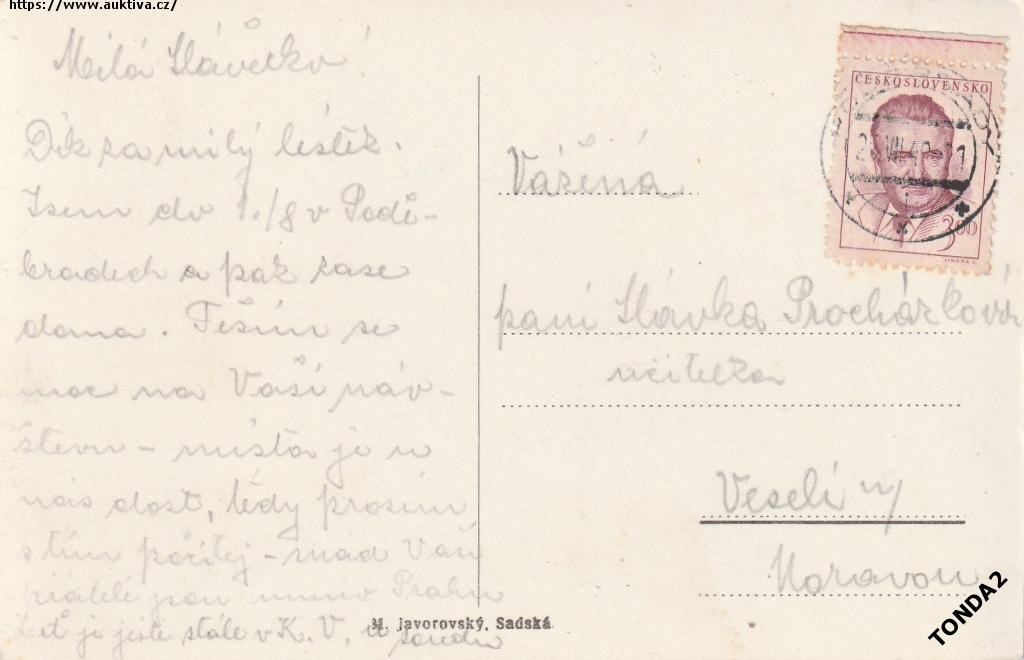 https://www.auktiva.cz/
Milá Slávečko!
Dík za milý lístek.
Jsem do 1./8 v Podě-
bradech a pak zase
doma. Těším se
moc na Vaší náv-
štěvu - místa je u
nás dost, tedy prosím
s tím počítej - snad Vaši
přátelé jsou mimo Prahu
je ještě stále v K. V. u
M. Javorovský, Sadská
ČESKOSLOVENSKO
3.00
Vážená
paní Slávka Procházková
učitelka
Veselí n/
Moravou
TONDA2